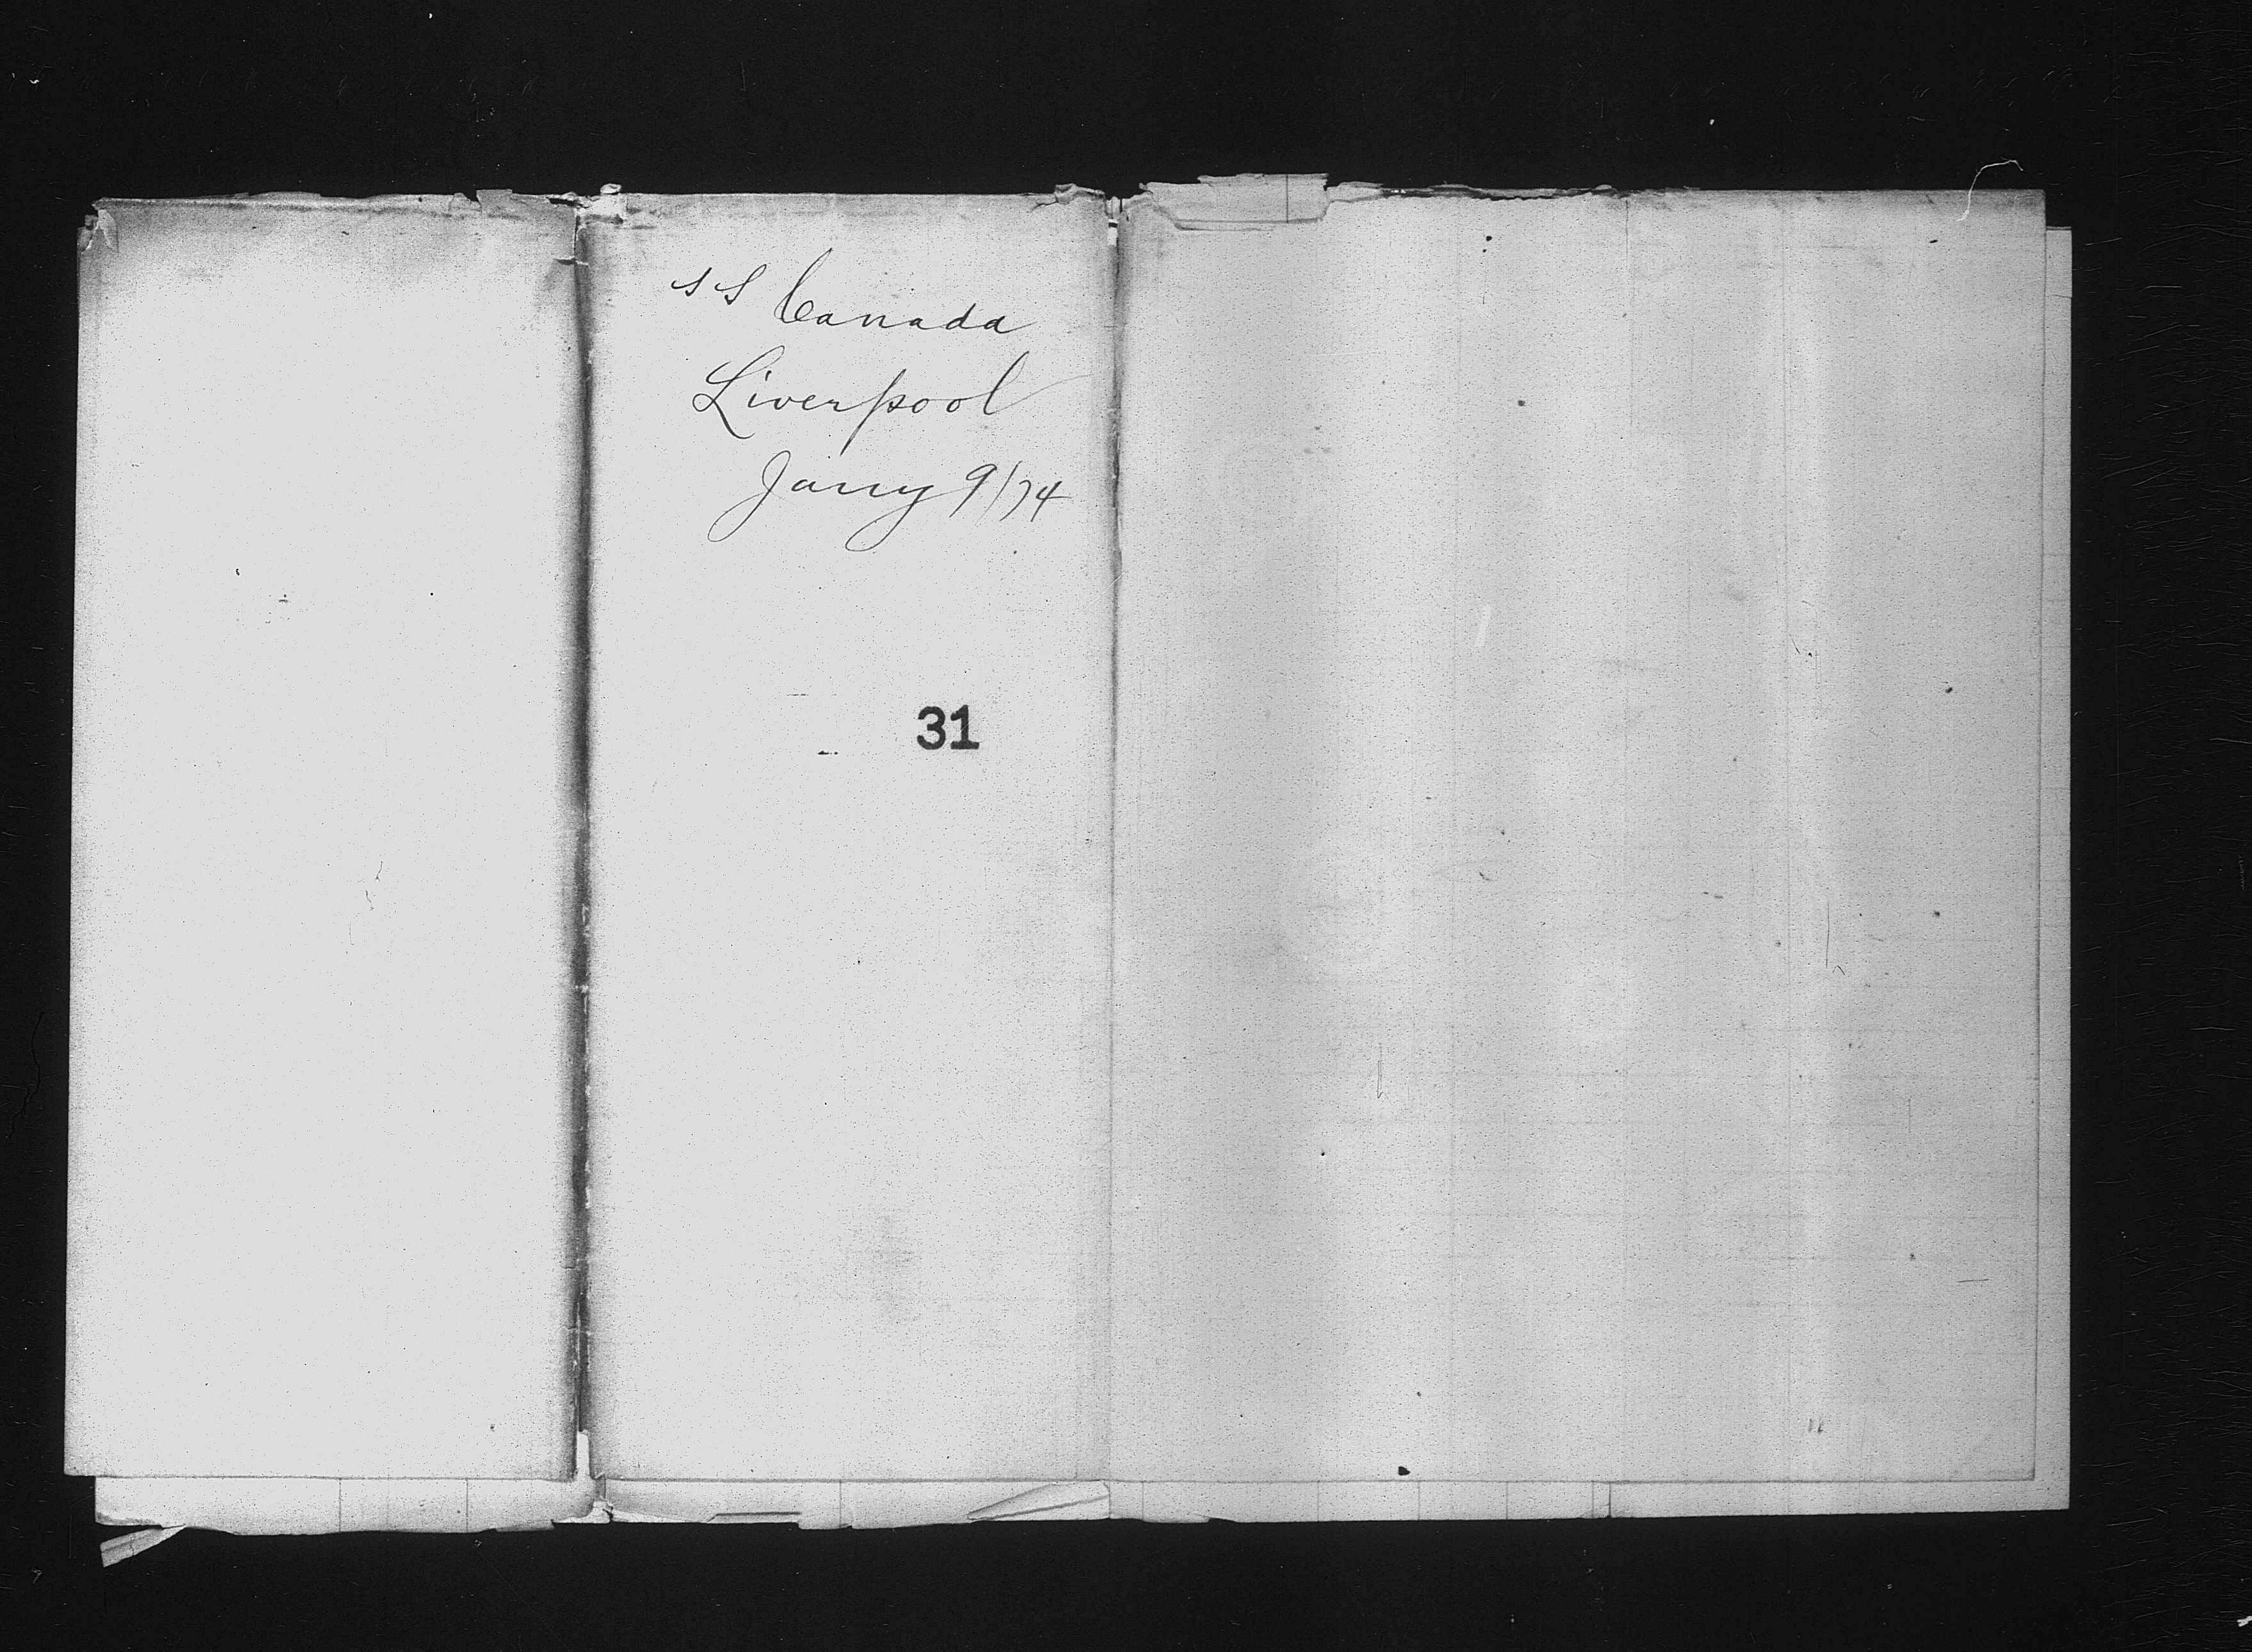 SS Canada
Liverpool
Jany 9/74
31